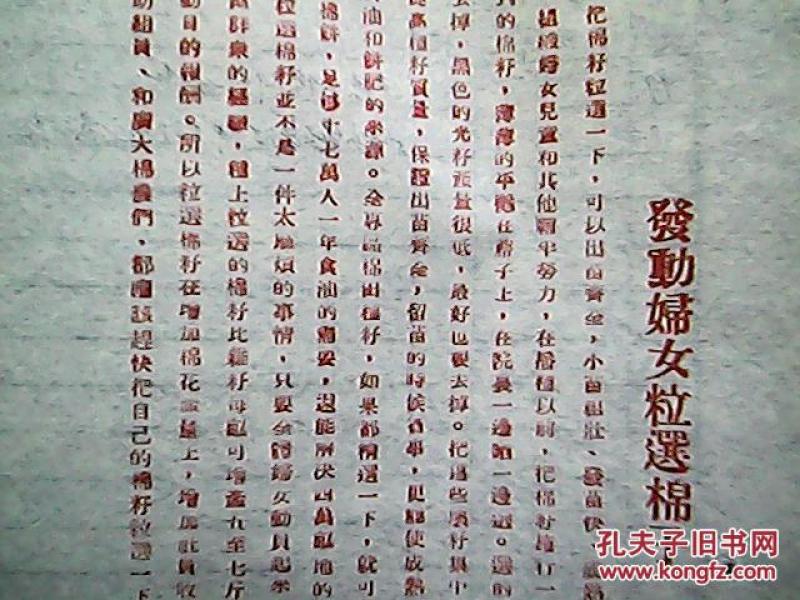 發動婦女粒選棉
把棉籽粒選一下，可以出苗齊全，小苗粗壯、發苗快
組織婦女兒童和其他弱半勞力，在播種以前，把棉籽
的棉籽，薄薄的平攤在蓆子上，在院裏一邊晒一邊選。選的
去掉，黑色的光籽質量很低，最好也要去掉。把這些
高種籽質量，保證出苗齊全，留苗的時候省事，更能使
油和餅肥的來源。全專區棉田種籽，如果都精選一下，就可
棉餅，足够十七萬人一年食油的需要，還能解决四萬畝地的
粒選棉籽並不是一件太麻煩的事情，只要全體婦女動員起來
羣衆的經驗，種上粒選的棉籽比雜籽每畝可增產九至七斤
動日的報酬。所以粒選棉籽在增加棉花產量上，增加社員收
動組員、和廣大棉農們，都應該趕快把自己的棉籽粒選一下
孔夫子旧书网
www.kongfz.com